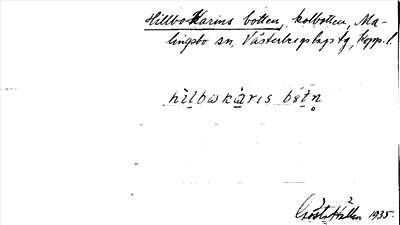 Hillbo Karins botten, kolbotten, Ma-
lingsbo sn, Västerbergslags tg, Kopp. l.
hìlbωkàris bót̥n̥
Gösta Hallén 1935.